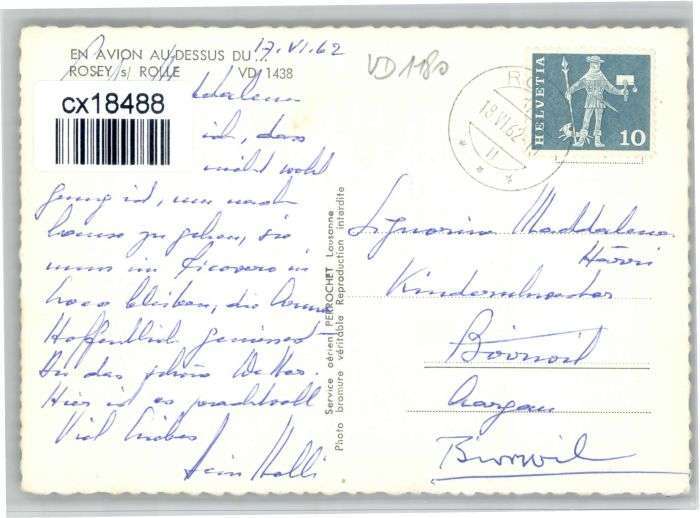 EN AVION AU-DESSUS DU...
ROSEY s/ ROLLE VD 1438
17.VI.62
VD 1180
cx18488
HELVETIA
10
RO
18.VI.62
II
Maddalena
ich, dass
nicht wohl
genug ist, um nach
Hause zu gehen, sie
muss im Ricovero in
bleiben, die Arme
Hoffentlich geniesst
Du das schöne Wetter.
Hier ist es prachtvoll
Viel Liebes
Dein
Service aérien PERROCHET Lausanne
Photo bromure véritable Reproduction interdite
Signorina Maddalena
Härri
Birrwil
Aargau
Birrwil